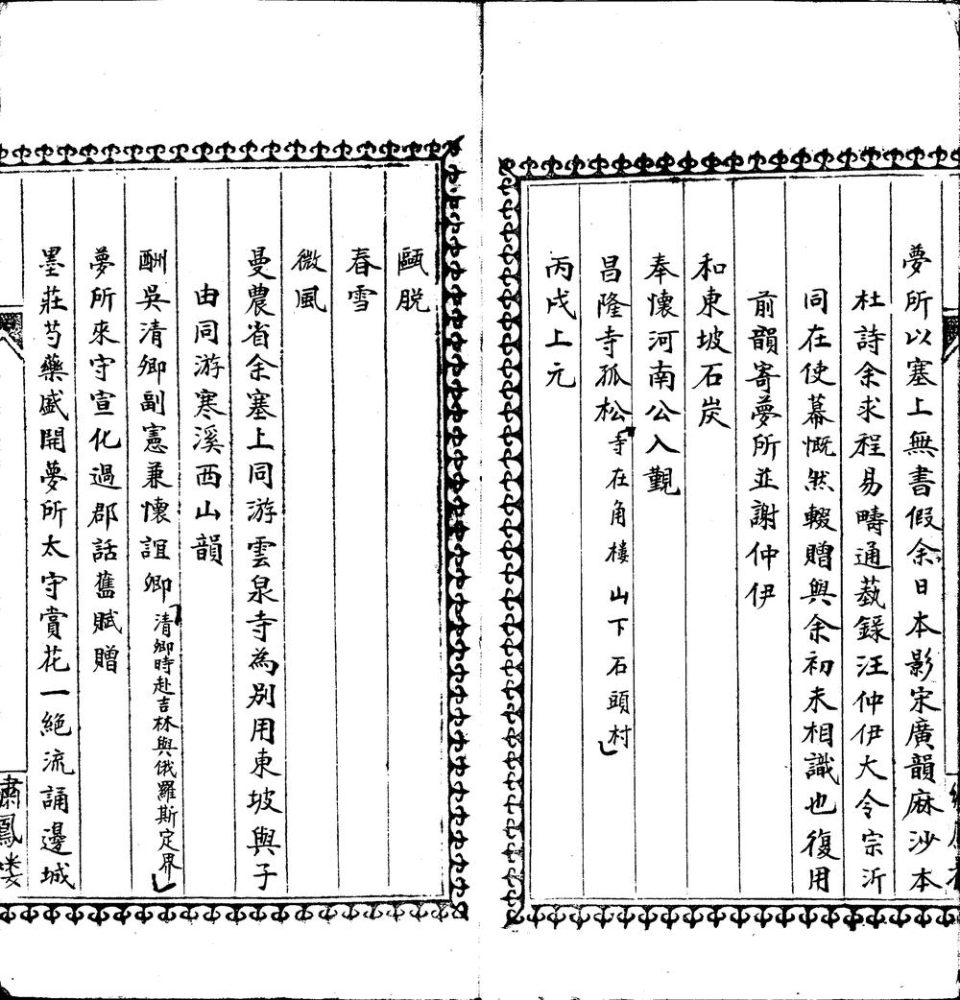 夢所以塞上無書假余日本影宋廣韻麻沙本
杜詩余求程易疇通藝錄汪仲伊大令宗沂
同在使幕慨然輟贈與余初未相識也復用
前韻寄夢所並謝仲伊
和東坡石炭
奉懷河南公入覲
昌隆寺孤松寺在角樓山下石頭村
丙戌上元
甌脱
春雪
微風
曼農省余塞上同游雲泉寺為別用東坡與子
由同游寒溪西山韻
酬吳清卿副憲兼懷誼卿清卿時赴吉林與俄羅斯定界
夢所來守宣化過郡話舊賦贈
墨莊芍藥盛開夢所太守賞花一絕流誦邊城
嘯鳳樓